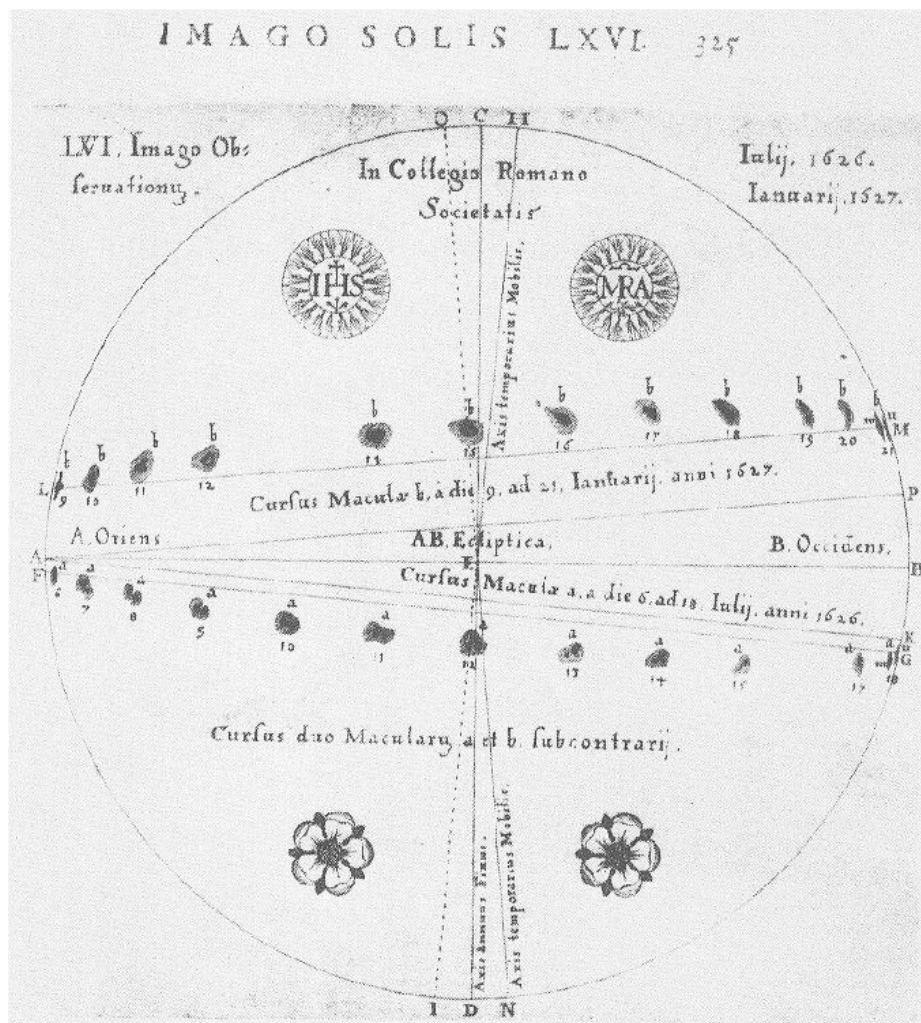 IMAGO SOLIS LXVI. 325
O C H
LXVI. Imago Ob=
seruationũ.
In Collegio Romano
Societatis
Iulij. 1626.
Ianuarij. 1627.
IHS
MRA
Axis temporarius Mobilis.
b b b b b b b b b b b b
n
m M
L 9 10 11 12 14 15 16 17 18 19 20 21
Cursus Maculæ b, à die 9, ad 21, Ianuarij. anni 1627.
P
A. Oriens
AB. Ecliptica.
B. Occidens.
A E B
Cursus Maculæ a, a die 6, ad 18, Iulij. anni 1626.
F a a a a a a a a a a a a
K
G
m
6 7 8 9 10 11 12 13 14 15 17 18
Cursus duo Macularũ a et b. subcontrarij.
Axis Annuus Fixus.
Axis temporarius Mobilis.
I D N